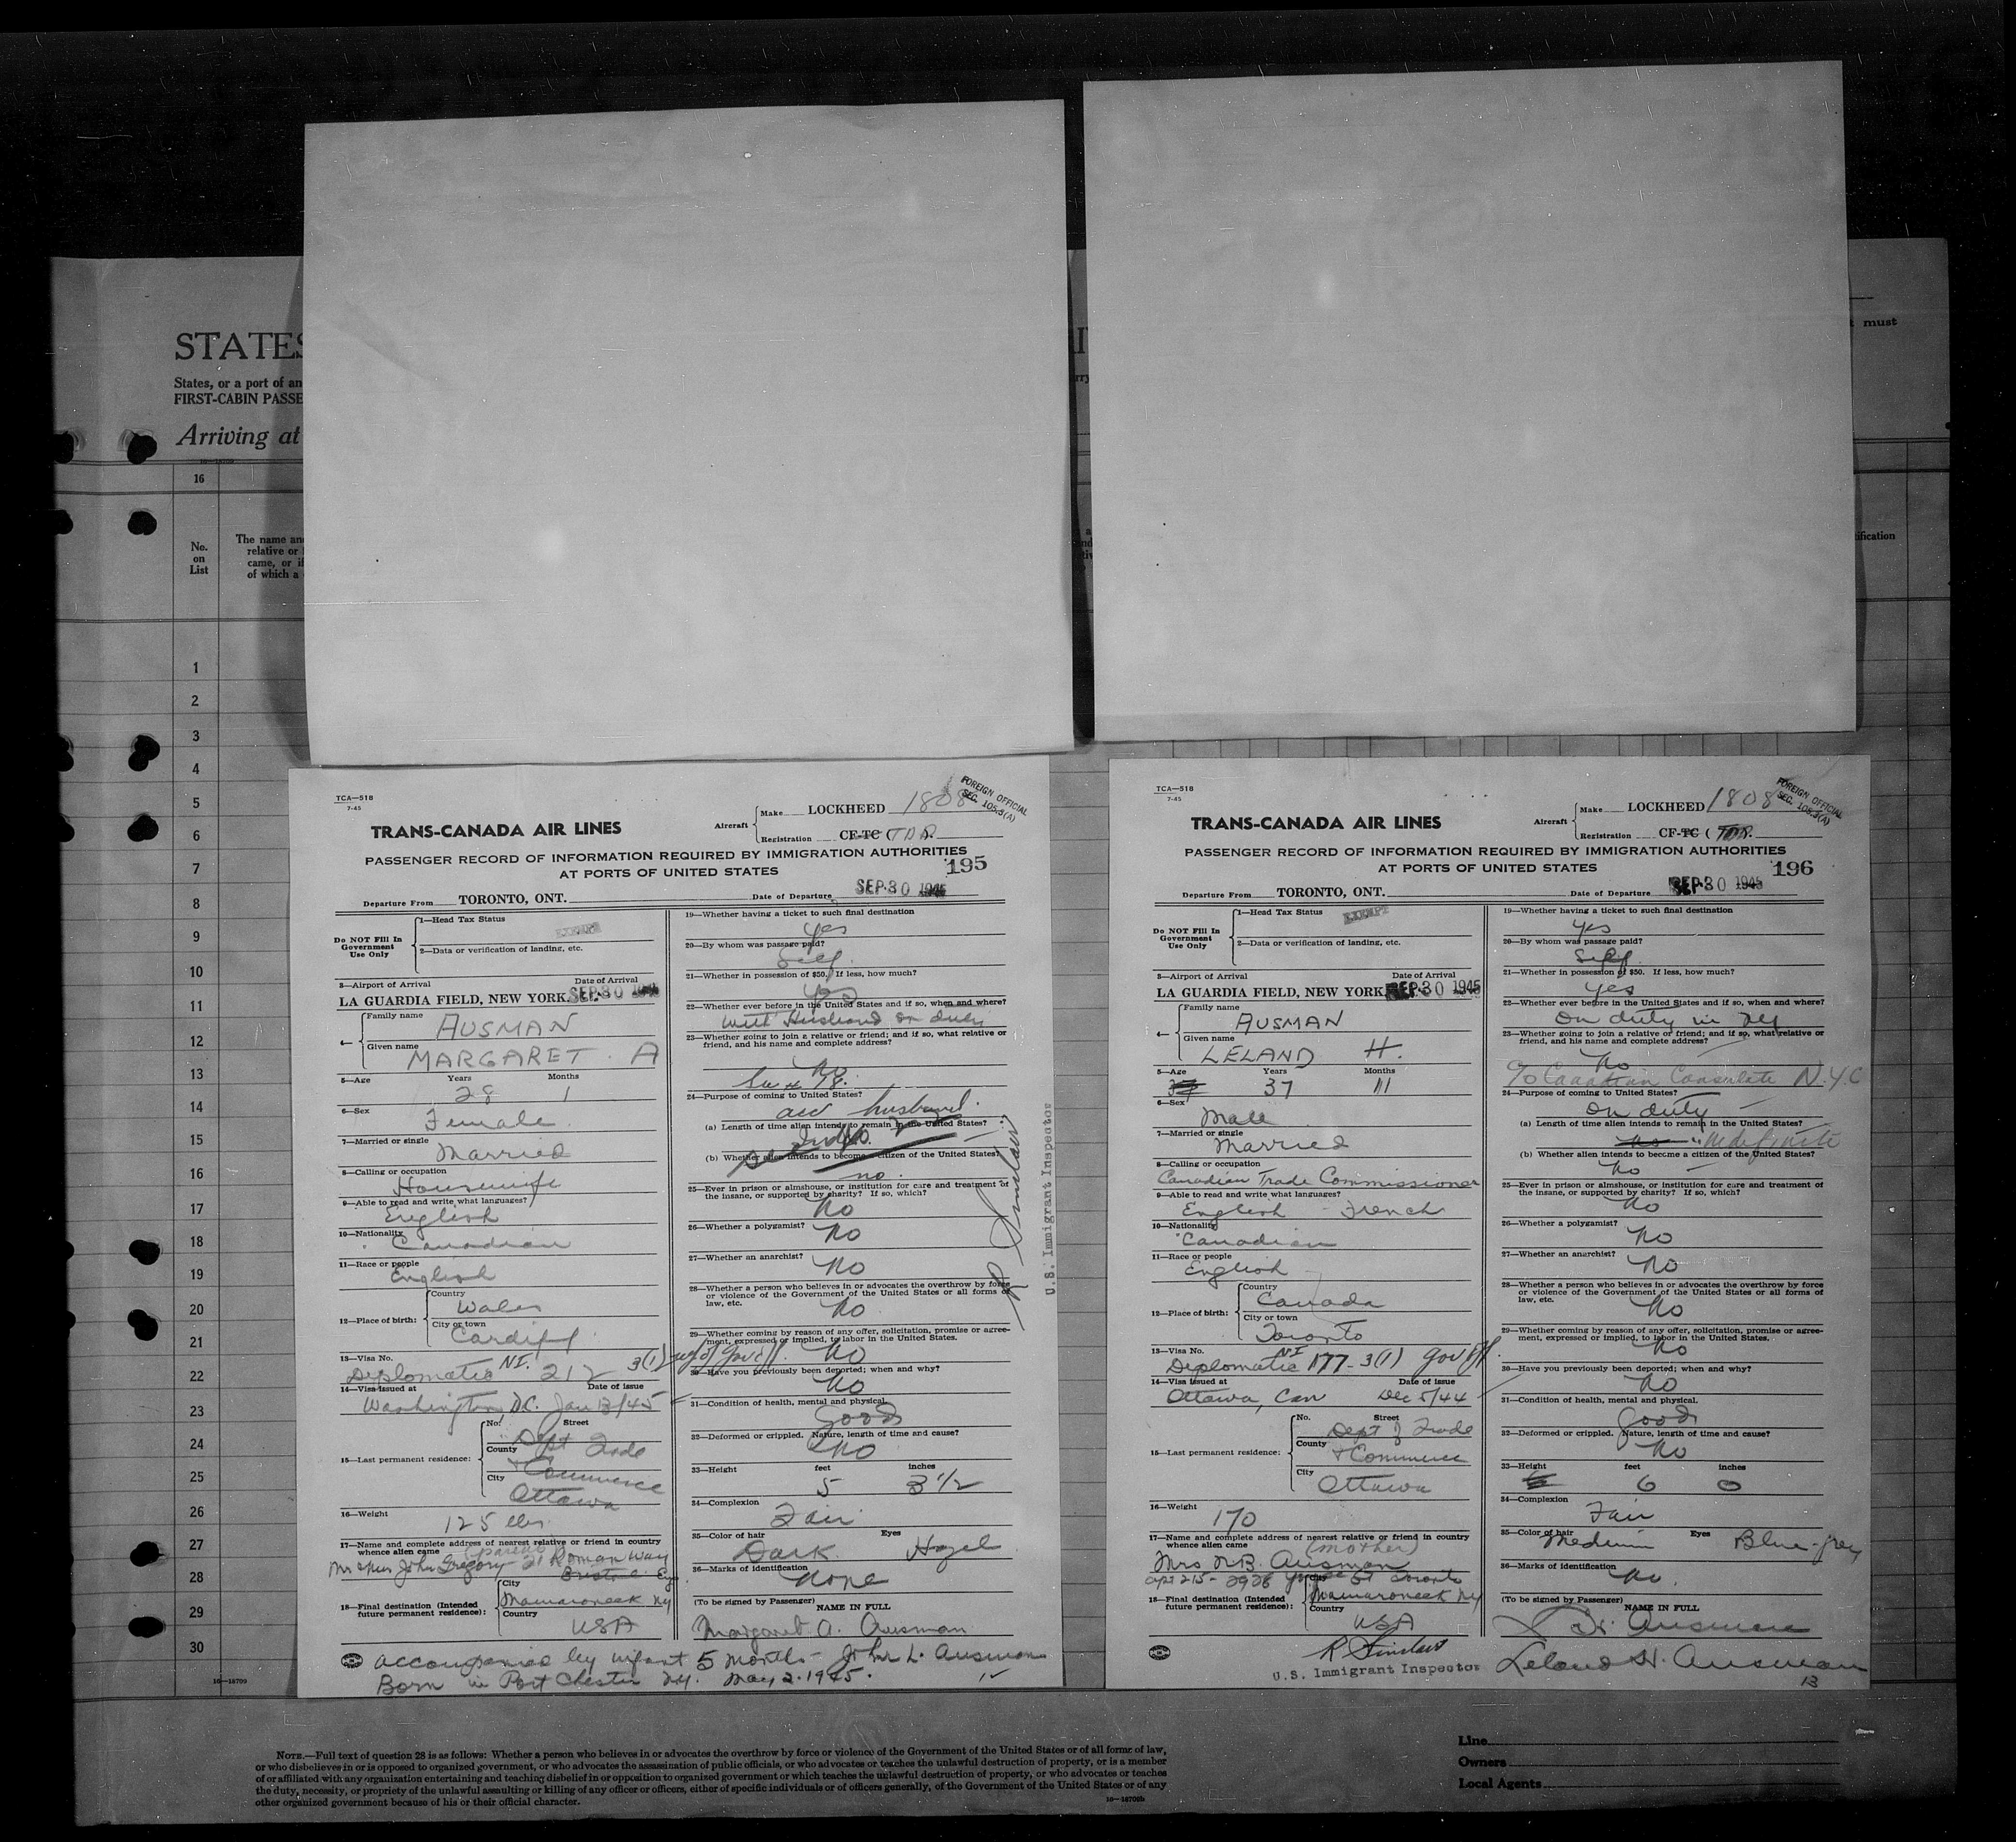 STATES
States, or a port of an
FIRST-CABIN PASSE
Arriving at
must
16
No.
on
List
The name an
relative or
came, or if
of which a
ification
1
2
3
4
5
6
7
8
9
10
11
12
13
14
15
16
17
18
19
20
21
22
23
24
25
26
27
28
29
30
16—18709
TCA—518
7-45
TRANS-CANADA AIR LINES
Aircraft
Make LOCKHEED 1808
Registration CF-TC (TDR.
FOREIGN OFFICIAL
SEC. 105.3(A)
PASSENGER RECORD OF INFORMATION REQUIRED BY IMMIGRATION AUTHORITIES
AT PORTS OF UNITED STATES
195
Departure From TORONTO, ONT.
Date of Departure SEP 30 1945
Do NOT Fill In
Government
Use Only
1—Head Tax Status
EXEMPT
2—Data or verification of landing, etc.
3—Airport of Arrival
Date of Arrival
LA GUARDIA FIELD, NEW YORK. SEP 30 1945
4—
Family name
AUSMAN
Given name
MARGARET. A
5—Age Years Months
28 1
6—Sex
Female
7—Married or single
Married
8—Calling or occupation
Housewife
9—Able to read and write what languages?
English
10—Nationality
Canadian
11—Race or people
English
12—Place of birth:
Country
Wales
City or town
Cardiff
13—Visa No.
Diplomatic NI. 212 3(1)
14—Visa issued at Date of issue
Washington D.C. Jan 13/45
15—Last permanent residence:
No. Street
Dept Trade
County
+ Commerce
City
Ottawa
16—Weight
125 lbs.
17—Name and complete address of nearest relative or friend in country
whence alien came
(parents)
Mr & Mrs John Gregory 21 Roman Way
Bristol Eng
18—Final destination (Intended
future permanent residence):
City
Mamaroneck NY
Country
USA
19—Whether having a ticket to such final destination
Yes
20—By whom was passage paid?
Self.
21—Whether in possession of $50. If less, how much?
Yes
22—Whether ever before in the United States and if so, when and where?
with Husband on duty
23—Whether going to join a relative or friend; and if so, what relative or
friend, and his name and complete address?
No
24—Purpose of coming to United States?
husband.
(a) Length of time alien intends to remain in the United States?
(b) Whether alien intends to become a citizen of the United States?
no.
25—Ever in prison or almshouse, or institution for care and treatment of
the insane, or supported by charity? If so, which?
No
26—Whether a polygamist?
No
27—Whether an anarchist?
No
28—Whether a person who believes in or advocates the overthrow by force
or violence of the Government of the United States or all forms of
law, etc.
No
29—Whether coming by reason of any offer, solicitation, promise or agree-
ment, expressed or implied, to labor in the United States.
No
30—Have you previously been deported; when and why?
No
31—Condition of health, mental and physical.
Good
32—Deformed or crippled. Nature, length of time and cause?
No
33—Height feet inches
5 3 1/2
34—Complexion
Fair
35—Color of hair Eyes
Dark Hazel
36—Marks of identification
None
(To be signed by Passenger) NAME IN FULL
Margaret A. Ausman
R Sinclair
U.S. Immigrant Inspector
accompanied by infant 5 months - John L. Ausman
Born in Port Chester NY. May 2. 1945.
TCA—518
7-45
TRANS-CANADA AIR LINES
Aircraft
Make LOCKHEED 1808
Registration CF-TC ( TDR.
FOREIGN OFFICIAL
SEC. 105.3(A)
PASSENGER RECORD OF INFORMATION REQUIRED BY IMMIGRATION AUTHORITIES
AT PORTS OF UNITED STATES
196
Departure From TORONTO, ONT.
Date of Departure SEP 30 1945
Do NOT Fill In
Government
Use Only
1—Head Tax Status
EXEMPT
2—Data or verification of landing, etc.
3—Airport of Arrival
Date of Arrival
LA GUARDIA FIELD, NEW YORK. SEP 30 1945
4—
Family name
AUSMAN
Given name
LELAND H.
5—Age Years Months
37 11
6—Sex
Male
7—Married or single
Married
8—Calling or occupation
Canadian Trade Commissioner
9—Able to read and write what languages?
English - French
10—Nationality
Canadian
11—Race or people
English
12—Place of birth:
Country
Canada
City or town
Toronto
13—Visa No.
Diplomatic NI 177-3(1) Gov Off.
14—Visa issued at Date of issue
Ottawa, Can Dec 5/44
15—Last permanent residence:
No. Street
Dept of Trade
County
+ Commerce
City
Ottawa
16—Weight
170
17—Name and complete address of nearest relative or friend in country
whence alien came
(mother)
Mrs N.B. Ausman
apt 215- 2928 Yonge St Toronto
18—Final destination (Intended
future permanent residence):
City
Mamaroneck NY
Country
USA
19—Whether having a ticket to such final destination
Yes
20—By whom was passage paid?
Self.
21—Whether in possession of $50. If less, how much?
Yes
22—Whether ever before in the United States and if so, when and where?
On duty in NY
23—Whether going to join a relative or friend; and if so, what relative or
friend, and his name and complete address?
No
c/o Canadian Consulate N.Y.C
24—Purpose of coming to United States?
On duty
(a) Length of time alien intends to remain in the United States?
Indefinite
(b) Whether alien intends to become a citizen of the United States?
No
25—Ever in prison or almshouse, or institution for care and treatment of
the insane, or supported by charity? If so, which?
No
26—Whether a polygamist?
No
27—Whether an anarchist?
No
28—Whether a person who believes in or advocates the overthrow by force
or violence of the Government of the United States or all forms of
law, etc.
No
29—Whether coming by reason of any offer, solicitation, promise or agree-
ment, expressed or implied, to labor in the United States.
No
30—Have you previously been deported; when and why?
No
31—Condition of health, mental and physical.
Good
32—Deformed or crippled. Nature, length of time and cause?
No
33—Height feet inches
6 0
34—Complexion
Fair
35—Color of hair Eyes
Medium Blue-grey
36—Marks of identification
No.
(To be signed by Passenger) NAME IN FULL
Ausman
R Sinclair
U.S. Immigrant Inspector
Leland H. Ausman
13
NOTE.—Full text of question 28 is as follows: Whether a person who believes in or advocates the overthrow by force or violence of the Government of the United States or of all forms of law,
or who disbelieves in or is opposed to organized government, or who advocates the assassination of public officials, or who advocates or teaches the unlawful destruction of property, or is a member
of or affiliated with any organization entertaining and teaching disbelief in or opposition to organized government or which teaches the unlawful destruction of property, or who advocates or teaches
the duty, necessity, or propriety of the unlawful assaulting or killing of any officer or officers, either of specific individuals or of officers generally, of the Government of the United States or of any
other organized government because of his or their official character.
16—18709b
Line
Owners
Local Agents